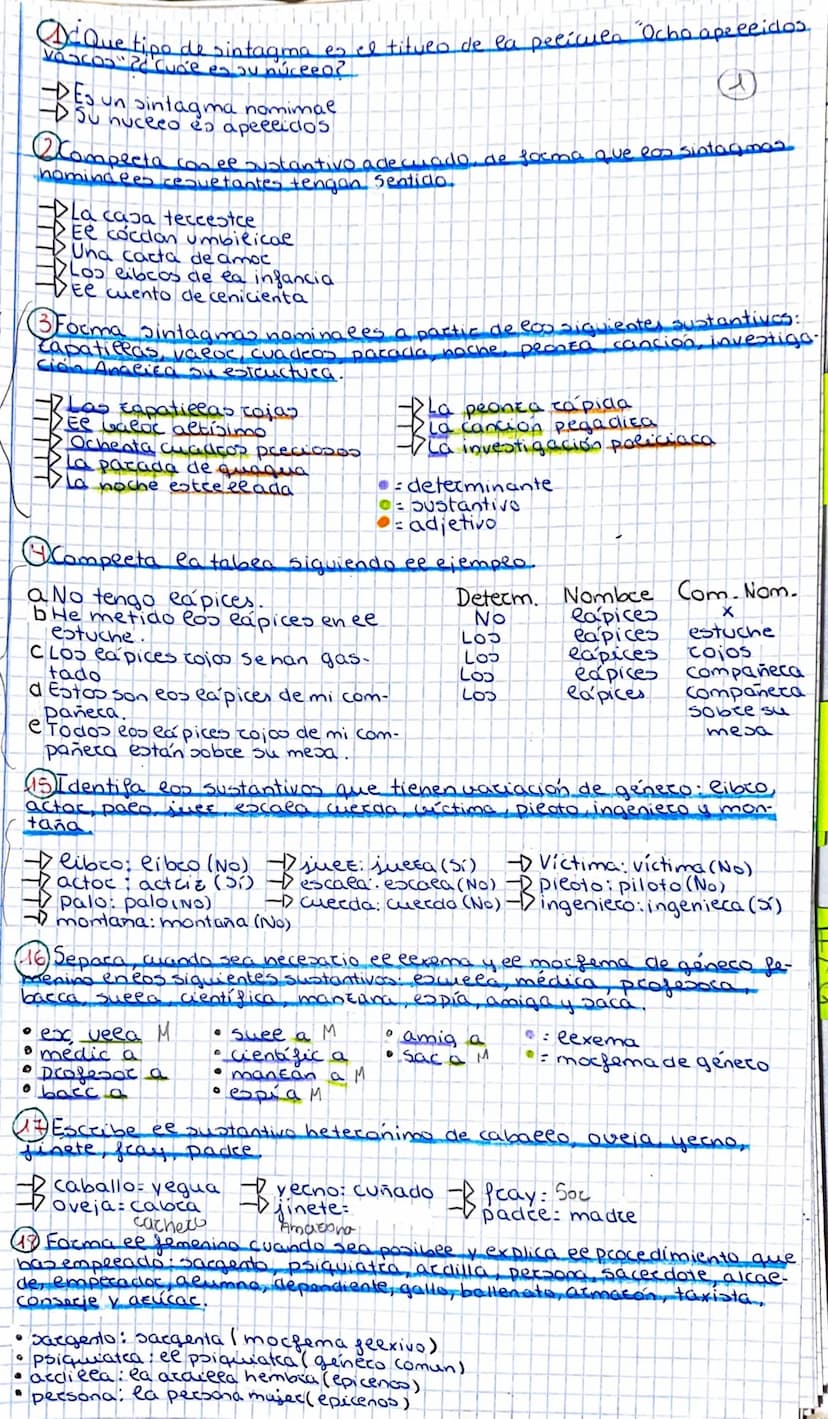 1 ¿Que tipo de sintagma es el titulo de la película "Ocho apellidos
vascos"? ¿Cuál es su núcleo?
1
→ Es un sintagma nominal
→ Su nucleo es apellidos
2 Completa con el sustantivo adecuado, de forma que los sintagmas
nominales resultantes tengan sentido.
→ La casa terrestre
→ El cordón umbilical
→ Una carta de amor
→ Los libros de la infancia
→ El cuento de cenicienta
3 Forma sintagmas nominales a partir de los siguientes sustantivos:
zapatillas, valor, cuadros, parada, noche, peonza, canción, investiga-
ción. Analiza su estructura.
→ Las zapatillas rojas
→ El valor altísimo
→ Ochenta cuadros preciosos
→ La parada de guagua
→ La noche estrellada
→ La peonza rápida
→ La canción pegadiza
→ La investigación policiaca
• = determinante
• = sustantivo
• = adjetivo
4 Completa la tabla siguiendo el ejemplo.
Determ. Nombre Com. Nom.
a No tengo lápices. No lápices x
b He metido los lápices en el
estuche. Los lápices estuche
c Los lápices rojos se han gas-
tado Los lápices rojos
d Estos son los lápices de mi com-
pañera. Los lápices compañera
e Todos los lápices rojos de mi com-
pañera están sobre su mesa. Los lápices compañera
sobre su
mesa
15 Identifa los sustantivos que tienen variación de género: libro,
actor, palo, juez, escala, cuerda, víctima, piloto, ingeniero y mon-
taña
→ libro: libro (No) → juez: jueza (Sí) → Víctima: víctima (No)
→ actor: actriz (Sí) → escala: escala (No) → piloto: piloto (No)
→ palo: palo (No) → cuerda: cuerda (No) → ingeniero: ingeniera (Sí)
→ montana: montaña (No)
16 Separa, cuando sea necesario el lexema y el morfema de género fe-
menino en los siguientes sustantivos: escuela, médica, profesora,
barca, suela, científica, manzana, espía, amiga y saca.
• esc uela M • suel a M • amig a • : lexema
• médic a • científic a • sac a M • = morfema de género
• profesor a • manzan a M
• barc a • espía M
17 Escribe el sustantivo heterónimo de caballo, oveja, yerno,
jinete, fray, padre.
→ caballo: yegua → yerno: cuñado → fray: Sor
→ oveja: cabra → jinete: → padre: madre
carnero Amazona
18 Forma el femenino cuando sea posible y explica el procedimiento que
has empleado: sargento, psiquiatra, ardilla, persona, sacerdote, alcal-
de, emperador, alumno, dependiente, gallo, ballenato, armazón, taxista,
conserje y azúcar.
• sargento: sargenta (morfema flexivo)
• psiquiatra: el psiquiatra (género comun)
• ardilla: la ardilla hembra (epicenos)
• persona: la persona mujer (epicenos)